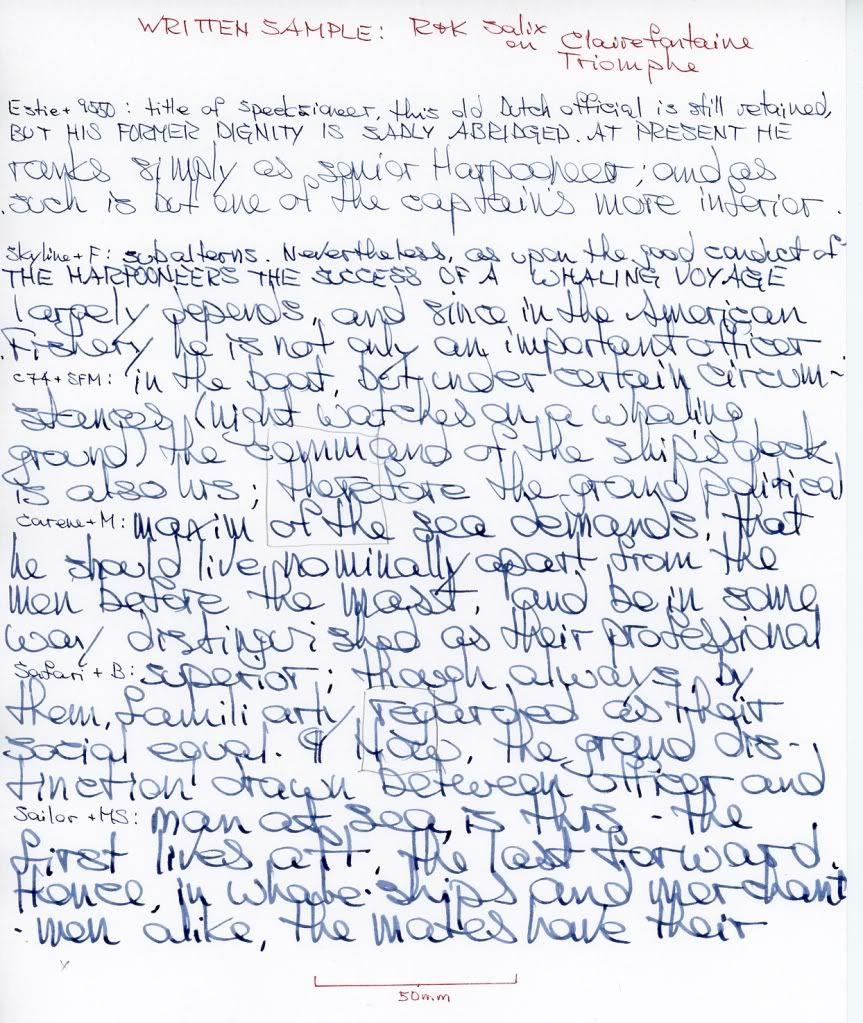 WRITTEN SAMPLE: R&K Salix
on Clairefontaine
Triomphe
Estie + 9550 : title of Specksioneer, this old Dutch official is still retained,
BUT HIS FORMER DIGNITY IS SADLY ABRIDGED. AT PRESENT HE
ranks simply as senior Harpooneer; and as
such is but one of the captain's more inferior
Skyline + F : subalterns. Nevertheless, as upon the good conduct of
THE HARPOONEERS THE SUCCESS OF A WHALING VOYAGE
largely depends, and since in the American
Fishery he is not only an important officer
C74 + SFM : in the boat, but under certain circum-
stances (night watches on a whaling
ground) the command of the ship's deck
is also his; therefore the grand political
Carene + M : maxim of the sea demands, that
he should live nominally apart from the
men before the mast, and be in some
way distinguished as their professional
Safari + B : superior; though always, by
them, familiarly regarded as their
social equal. ¶ Now, the grand dis-
tinction drawn between officer and
Sailor + MS : man at sea, is this - the
first lives aft, the last forward.
Hence, in whale-ships and merchant
-men alike, the mates have their
50mm